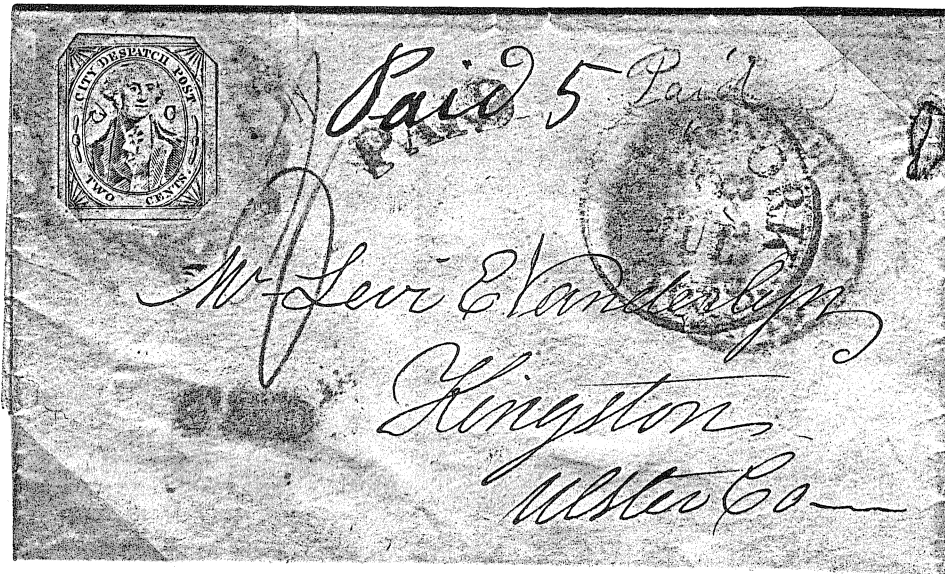 CITY DESPATCH POST
C C
TWO CENTS
Paid 5 Paid
PAID
ORK
Mr Levi E Vanderlyn
Kingston
Ulster Co